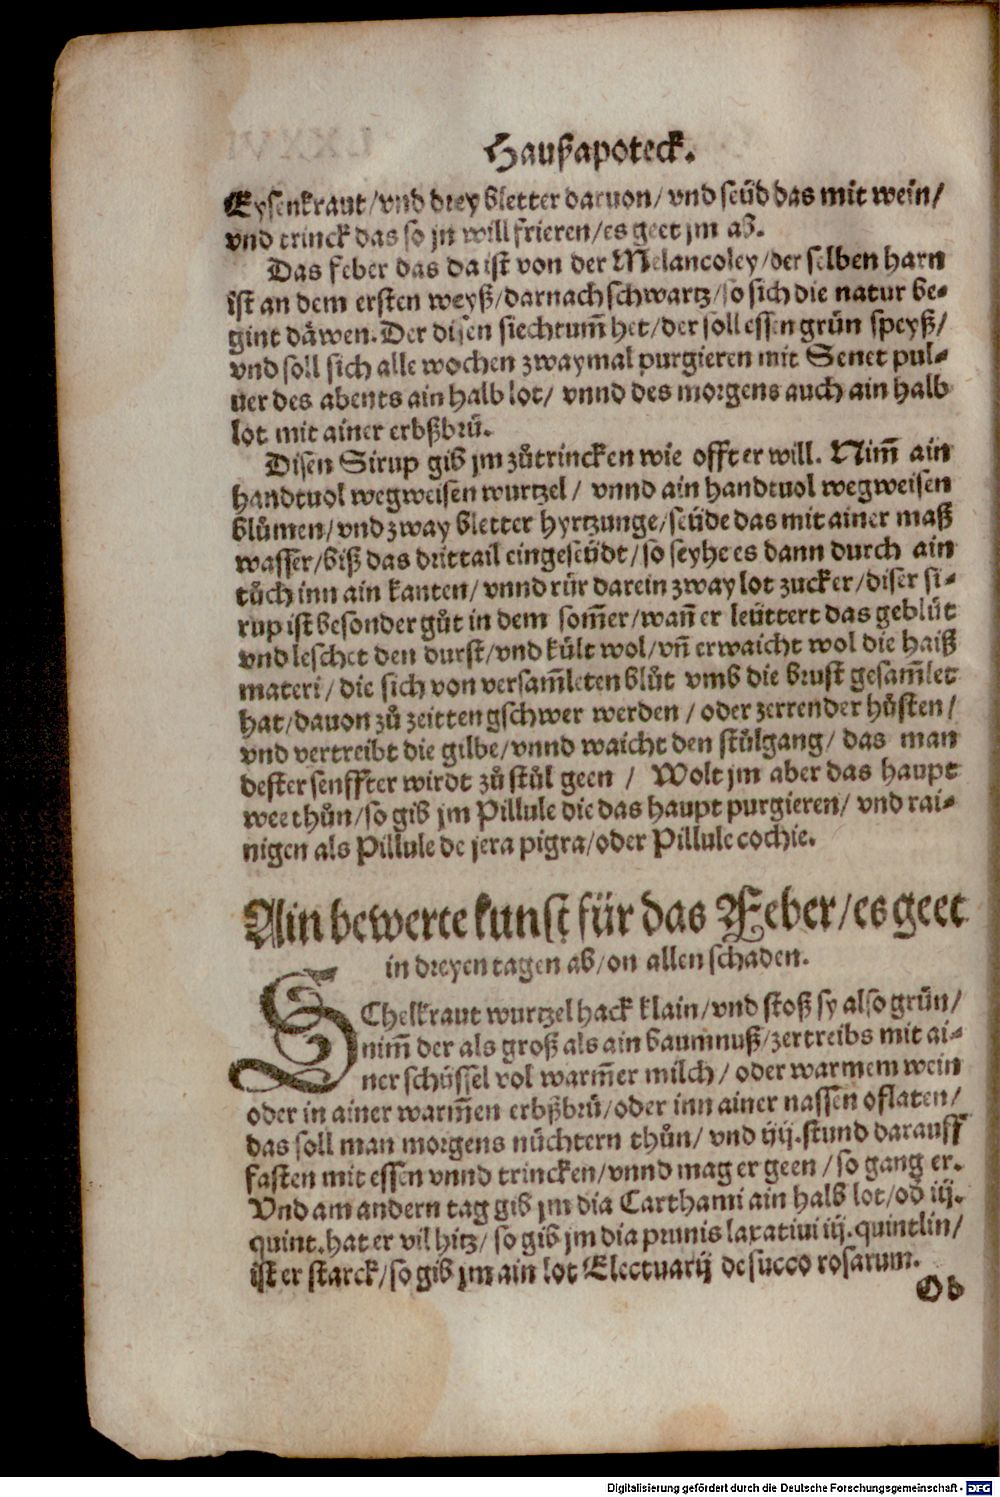 Haußapoteck.
Eysenkraut/vnd drey bletter daruon/ vnd seüd das mit wein/
vnd trinck das so jn will frieren/es geet jm ab.
Das feber das da ist von der Melancoley/der selben harn
ist an dem ersten weyß/darnach schwartz/so sich die natur be-
gint däwen. Der disen siechtum̃ het/der soll essen grün speyß/
vnd soll sich alle wochen zwaymal purgieren mit Senet pul-
uer des abents ain halb lot/ vnnd des morgens auch ain halb
lot mit ainer erbßbrü.
Disen Sirup gib jm zůtrincken wie offt er will. Nim̃ ain
handtuol wegweisen wurtzel/ vnnd ain handtuol wegweisen
blůmen/vnd zway bletter hyrtzunge/seüde das mit ainer maß
wasser/biß das drittail eingeseüdt/so seyhe es dann durch ain
tůch inn ain kanten/vnnd rür darein zway lot zucker/diser si-
rup ist besonder gůt in dem som̃er/wañ er leüttert das geblüt
vnd leschet den durst/vnd kült wol/vñ erwaicht wol die haiß
materi/die sich von versam̃leten blůt vmb die brust gesam̃let
hat/dauon zů zeitten gschwer werden/oder zerrender hůsten/
vnd vertreibt die gilbe/vnnd waicht den stůlgang/das man
dester senffter wirdt zů stůl geen/ Wolt jm aber das haupt
wee thůn/so gib jm Pillule die das haupt purgieren/ vnd rai-
nigen als Pillule de jera pigra/oder Pillule cochie.
Ain bewerte kunst für das Feber/es geet
in dreyen tagen ab/on allen schaden.
SChelkraut wurtzel hack klain/vnd stoß sy also grün/
nim̃ der als groß als ain baumnuß/zertreibs mit ai-
ner schüssel vol warm̃er milch/oder warmem wein
oder in ainer warm̃en erbßbrü/oder inn ainer nassen oflaten/
das soll man morgens nüchtern thůn/ vnd iij.stund darauff
fasten mit essen vnnd trincken/vnnd mag er geen/so gang er.
Vnd am andern tag gib jm dia Carthami ain halb lot/oď iij.
quint.hat er vil hitz/so gib jm dia prunis laxatiui iij.quintlin/
ist er starck/so gib jm ain lot Electuarij de succo rosarum.
Ob
Digitalisierung gefördert durch die Deutsche Forschungsgemeinschaft - DFG